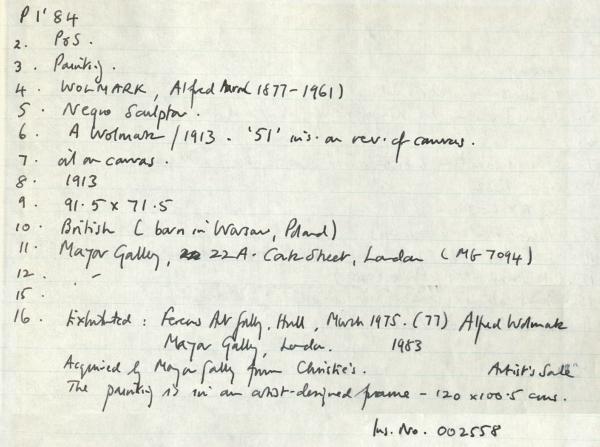 P 1' 84
2. P&S.
3. Painting.
4. WOLMARK, Alfred Aaron 1877-1961)
5. Negro Sculptor.
6. A Wolmark / 1913 - '51' ins. on rev. of canvas.
7. oil on canvas.
8. 1913
9. 91.5 x 71.5
10. British (born in Warsaw, Poland)
11. Mayor Gallery, 22A. Cork Street, London (MG 7094)
12. -
15.
16. Exhibited: Ferens Art Gally, Hull, March 1975. (77) Alfred Wolmark
Mayor Gally, London. 1983
Acquired by Mayor Gally from Christie's. Artist's Sale
The painting is in an artist-designed frame - 120 x 100.5 cms.
Ins. No. 002558